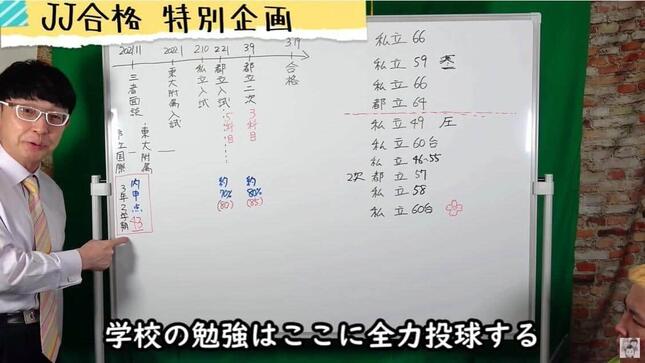 JJ合格 特別企画
2021.11
2022.1
2.10
2.21
3.9
3.19
三者面談
東大附属入試
私立入試
都立入試
都立二次
合格
5科目
3科目
東大附属
市立国際
内申点 43
3年2学期
約70%
(80)
約80%
(85)
私立 66
私立 59
私立 66
都立 64
私立 49 圧
私立 60台
私立 46~55
2次 都立 57
私立 58
私立 60台
学校の勉強はここに全力投球する